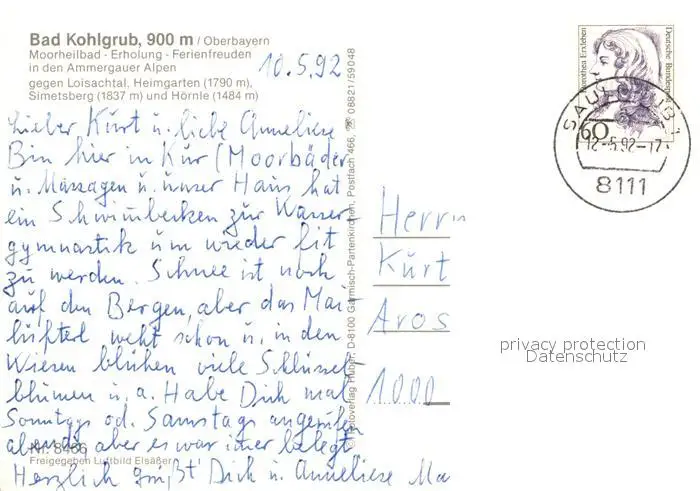 Bad Kohlgrub, 900 m / Oberbayern
Moorheilbad - Erholung - Ferienfreuden
in den Ammergauer Alpen
gegen Loisachtal, Heimgarten (1790 m),
Simetsberg (1837 m) und Hörnle (1484 m)
10.5.92
Lieber Kurt u. liebe Anneliese
Bin hier in Kur (Moorbäder
u. Massagen u. unser Haus hat
ein Schwimbecken zur Wasser
gymnastik um wieder fit
zu werden. Schnee ist noch
auf den Bergen, aber das Mai
lüfterl weht schon u. in den
Wiesen blühen viele Schlüssel
blümen u. a. Habe Dich mal
Sonntgs od. Samstags angerufen
abends aber es war imer belegt
Nr. 8466
Freigegeben Luftbild Elsäßer
Herzlich grüßt Dich u. Anneliese Ma
Fotoverlag Huber, D-8100 Garmisch-Partenkirchen, Postfach 466, ☎ 08821/59048
Dorothea Erxleben
Deutsche Bundespost
60
SAULGRUB 1
12.-5.92-17
8111
Herrn
Kurt
Aros
1000
privacy protection
Datenschutz